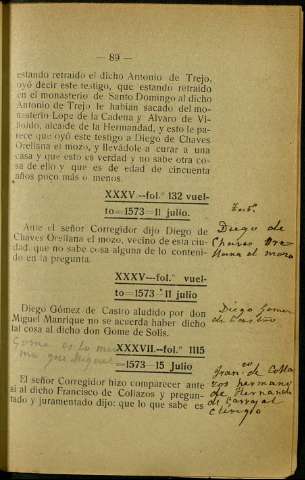 — 89 —
estando retraido el dicho Antonio de Trejo,
oyó decir este testigo, que estando retraido
en el monasterio de Santo Domingo al dicho
Antonio de Trejo le habían sacado del mo-
nasterio Lope de la Cadena y Alvaro de Vi-
alcaide de la Hermandad, y esto le pa-
rece que oyó este testigo a Diego de Chaves
Orellana el mozo, y llevádole a curar a una
casa y que esto es verdad y no sabe otra co-
sa de ello y que es de edad de cincuenta
años poco más o menos.
XXXV—fol.º 132 vuel-
to=1573=11 julio.
Ante el señor Corregidor dijo Diego de
Chaves Orellana el mozo, vecino de esta ciu-
dad, que no sabe cosa alguna de lo conteni-
do en la pregunta.
Diego de
Chaves Ore
llana el mozo
XXXV—fol.º vuel-
to=1573=11 julio
Diego Gómez de Castro aludido por don
Miguel Manrique no se acuerda haber dicho
tal cosa al dicho don Gome de Solís.
Diego Gomez
de Castro
Gome es lo mis
mo que
XXXVII.—fol.º 1115
=1573—15 Julio
El señor Corregidor hizo comparecer ante
sí al dicho Francisco de Collazos y pregun-
tado y juramentado dijo: que lo que sabe es
Fran.co de Colla
zos hermano
de Hernando
de Carvajal
clérigo